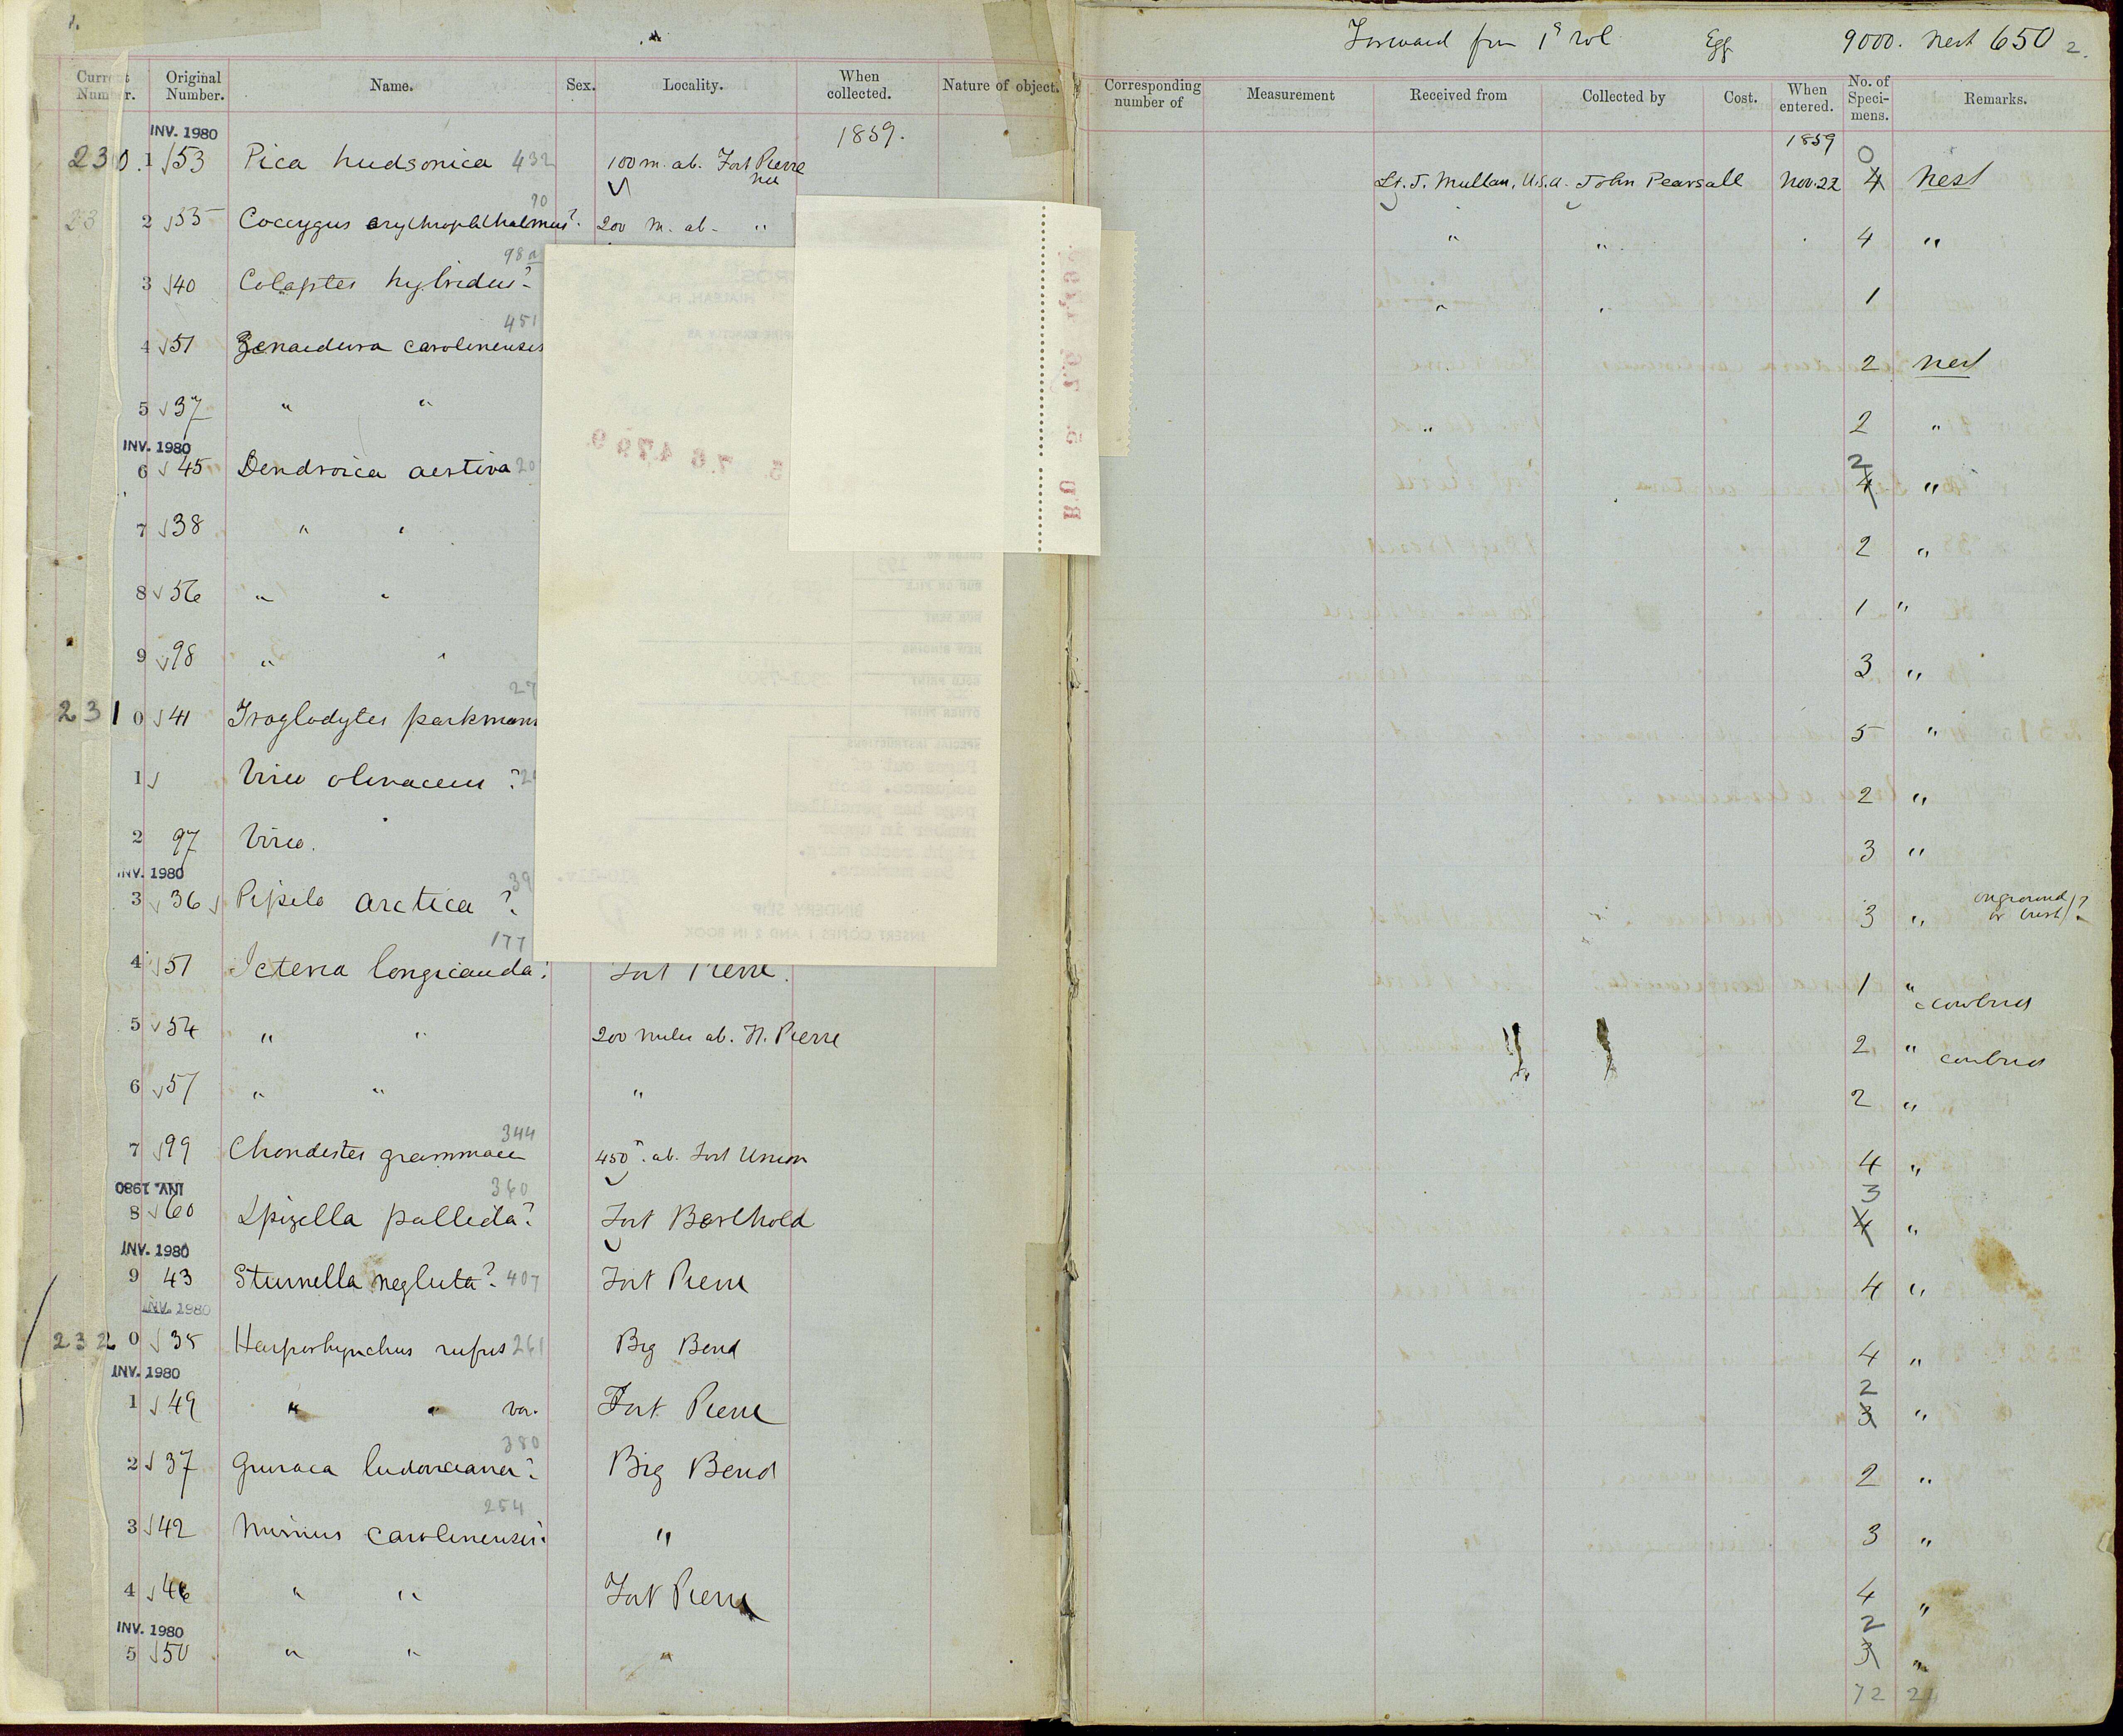 1.
Forward from 1st vol Egg 9000. Nest 650 2.
Current Number. Original Number. Name. Sex. Locality. When collected. Nature of object. Corresponding number of Measurement Received from Collected by Cost. When entered. No. of Specimens. Remarks.
INV. 1980 1859. 1859
230.1 53 Pica hudsonica 432 100 m. ab. Fort Pierre Lt. J. Mullan, U.S.A. John Pearsall Nov. 22 4 0 Nest
23 2 35 Coccygus erythrophthalmus? 70 200 m. ab. " " " 4 "
3 40 Colaptes hybridus? 98a " " 1
4 51 Zenaidura carolinensis 451 2 nest
5 37 " " " 2 "
INV. 1980
6 45 Dendroica aestiva 20 4 2 "
7 38 " " 2 "
8 56 " " 1 "
9 98 " " 3 "
231 0 41 Troglodytes parkmani 27 5 "
1 Vireo olivaceus? 2 "
2 97 Vireo. 3 "
INV. 1980
3 36 Pipilo arctica? 39 3 " on ground or bush/?
4 51 Icteria longicauda? 177 Fort Pierre. 1 " cowbird
5 54 " " 200 miles ab. Ft. Pierre " 2 " cowbird
6 57 " " " 2 "
7 99 Chondestes grammaca 344 450 m. ab. Fort Union 4 "
INV. 1980
8 60 Spizella pallida? 360 Fort Berthold 4 3 "
INV. 1980
9 43 Sturnella neglecta? 407 Fort Pierre 4 "
INV. 1980
232 0 35 Harporhynchus rufus 261 Big Bend 4 "
INV. 1980
1 49 " " var. Fort Pierre 3 2 "
2 37 Guiraca ludoviciana? 380 Big Bend 2 "
3 42 Mimus carolinensis. 254 " 3 "
4 46 " " Fort Pierre 4 "
INV. 1980
5 50 " " " 3 2 "
72